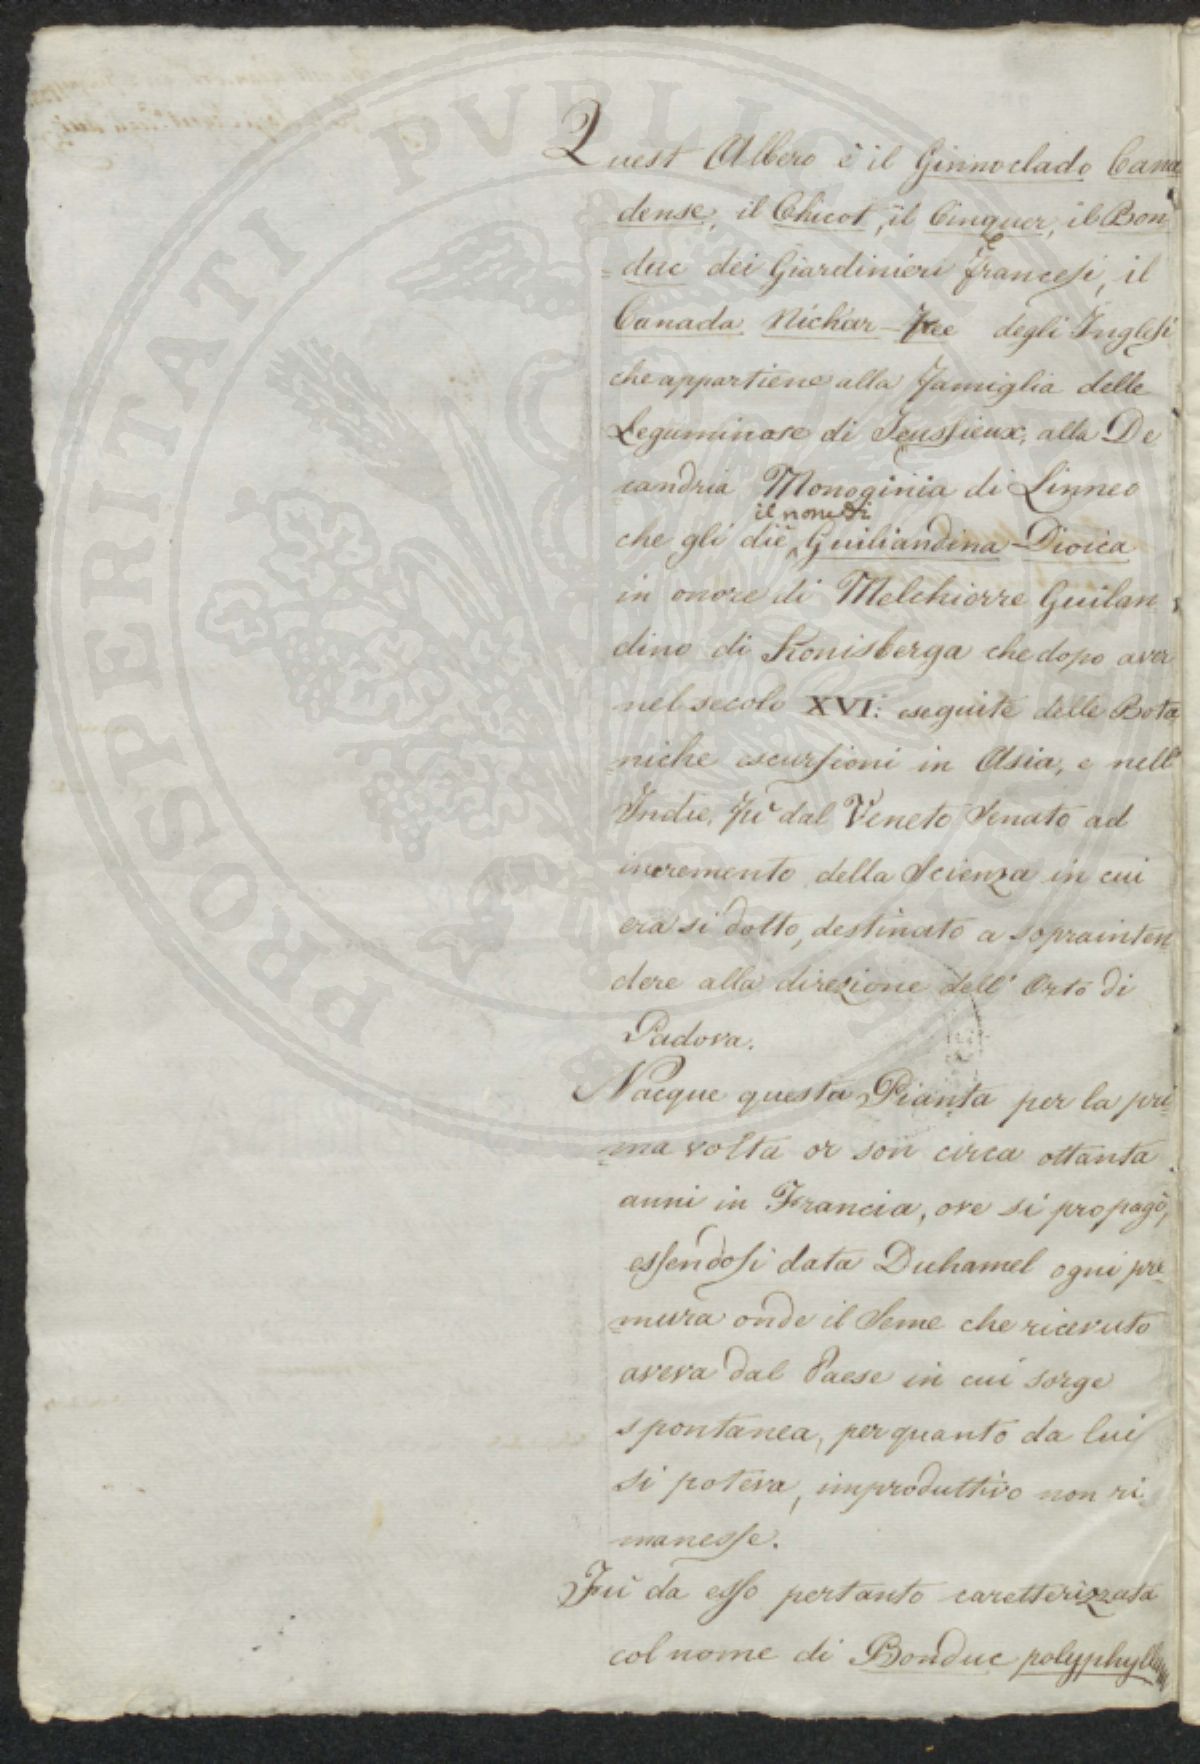 Quest Albero è il Ginnoclado Cana
dense, il Chicot, il Cinquer, il Bon
=duc dei Giardinieri Francesi, il
Canada Nickar-Tree degli Inglesi
che appartiene alla famiglia delle
Leguminose di Jeussieux, alla De
candria Monoginia di Linneo
il nome di
che gli diè Guiliandina-Dioica
in onore di Melchiorre Guilan
dino di Konisberga che dopo aver
nel secolo XVI: eseguite delle Bota
niche escursioni in Asia, e nell'
Indie, fù dal Veneto Senato ad
incremento della Scienza in cui
era si dotto, destinato a soprainten
dere alla direzione dell' Orto di
Padova.
Nacque questa Pianta per la pri
ma volta or son circa ottanta
anni in Francia, ove si propagò,
essendosi data Duhamel ogni pre
mura onde il Seme che ricevuto
aveva dal Paese in cui sorge
spontanea, per quanto da lui
si poteva, improduttivo non ri
manesse.
Fù da esso pertanto caretterizzata
col nome di Bonduc polyphyllum
PROSPERITATI PUBLICAE